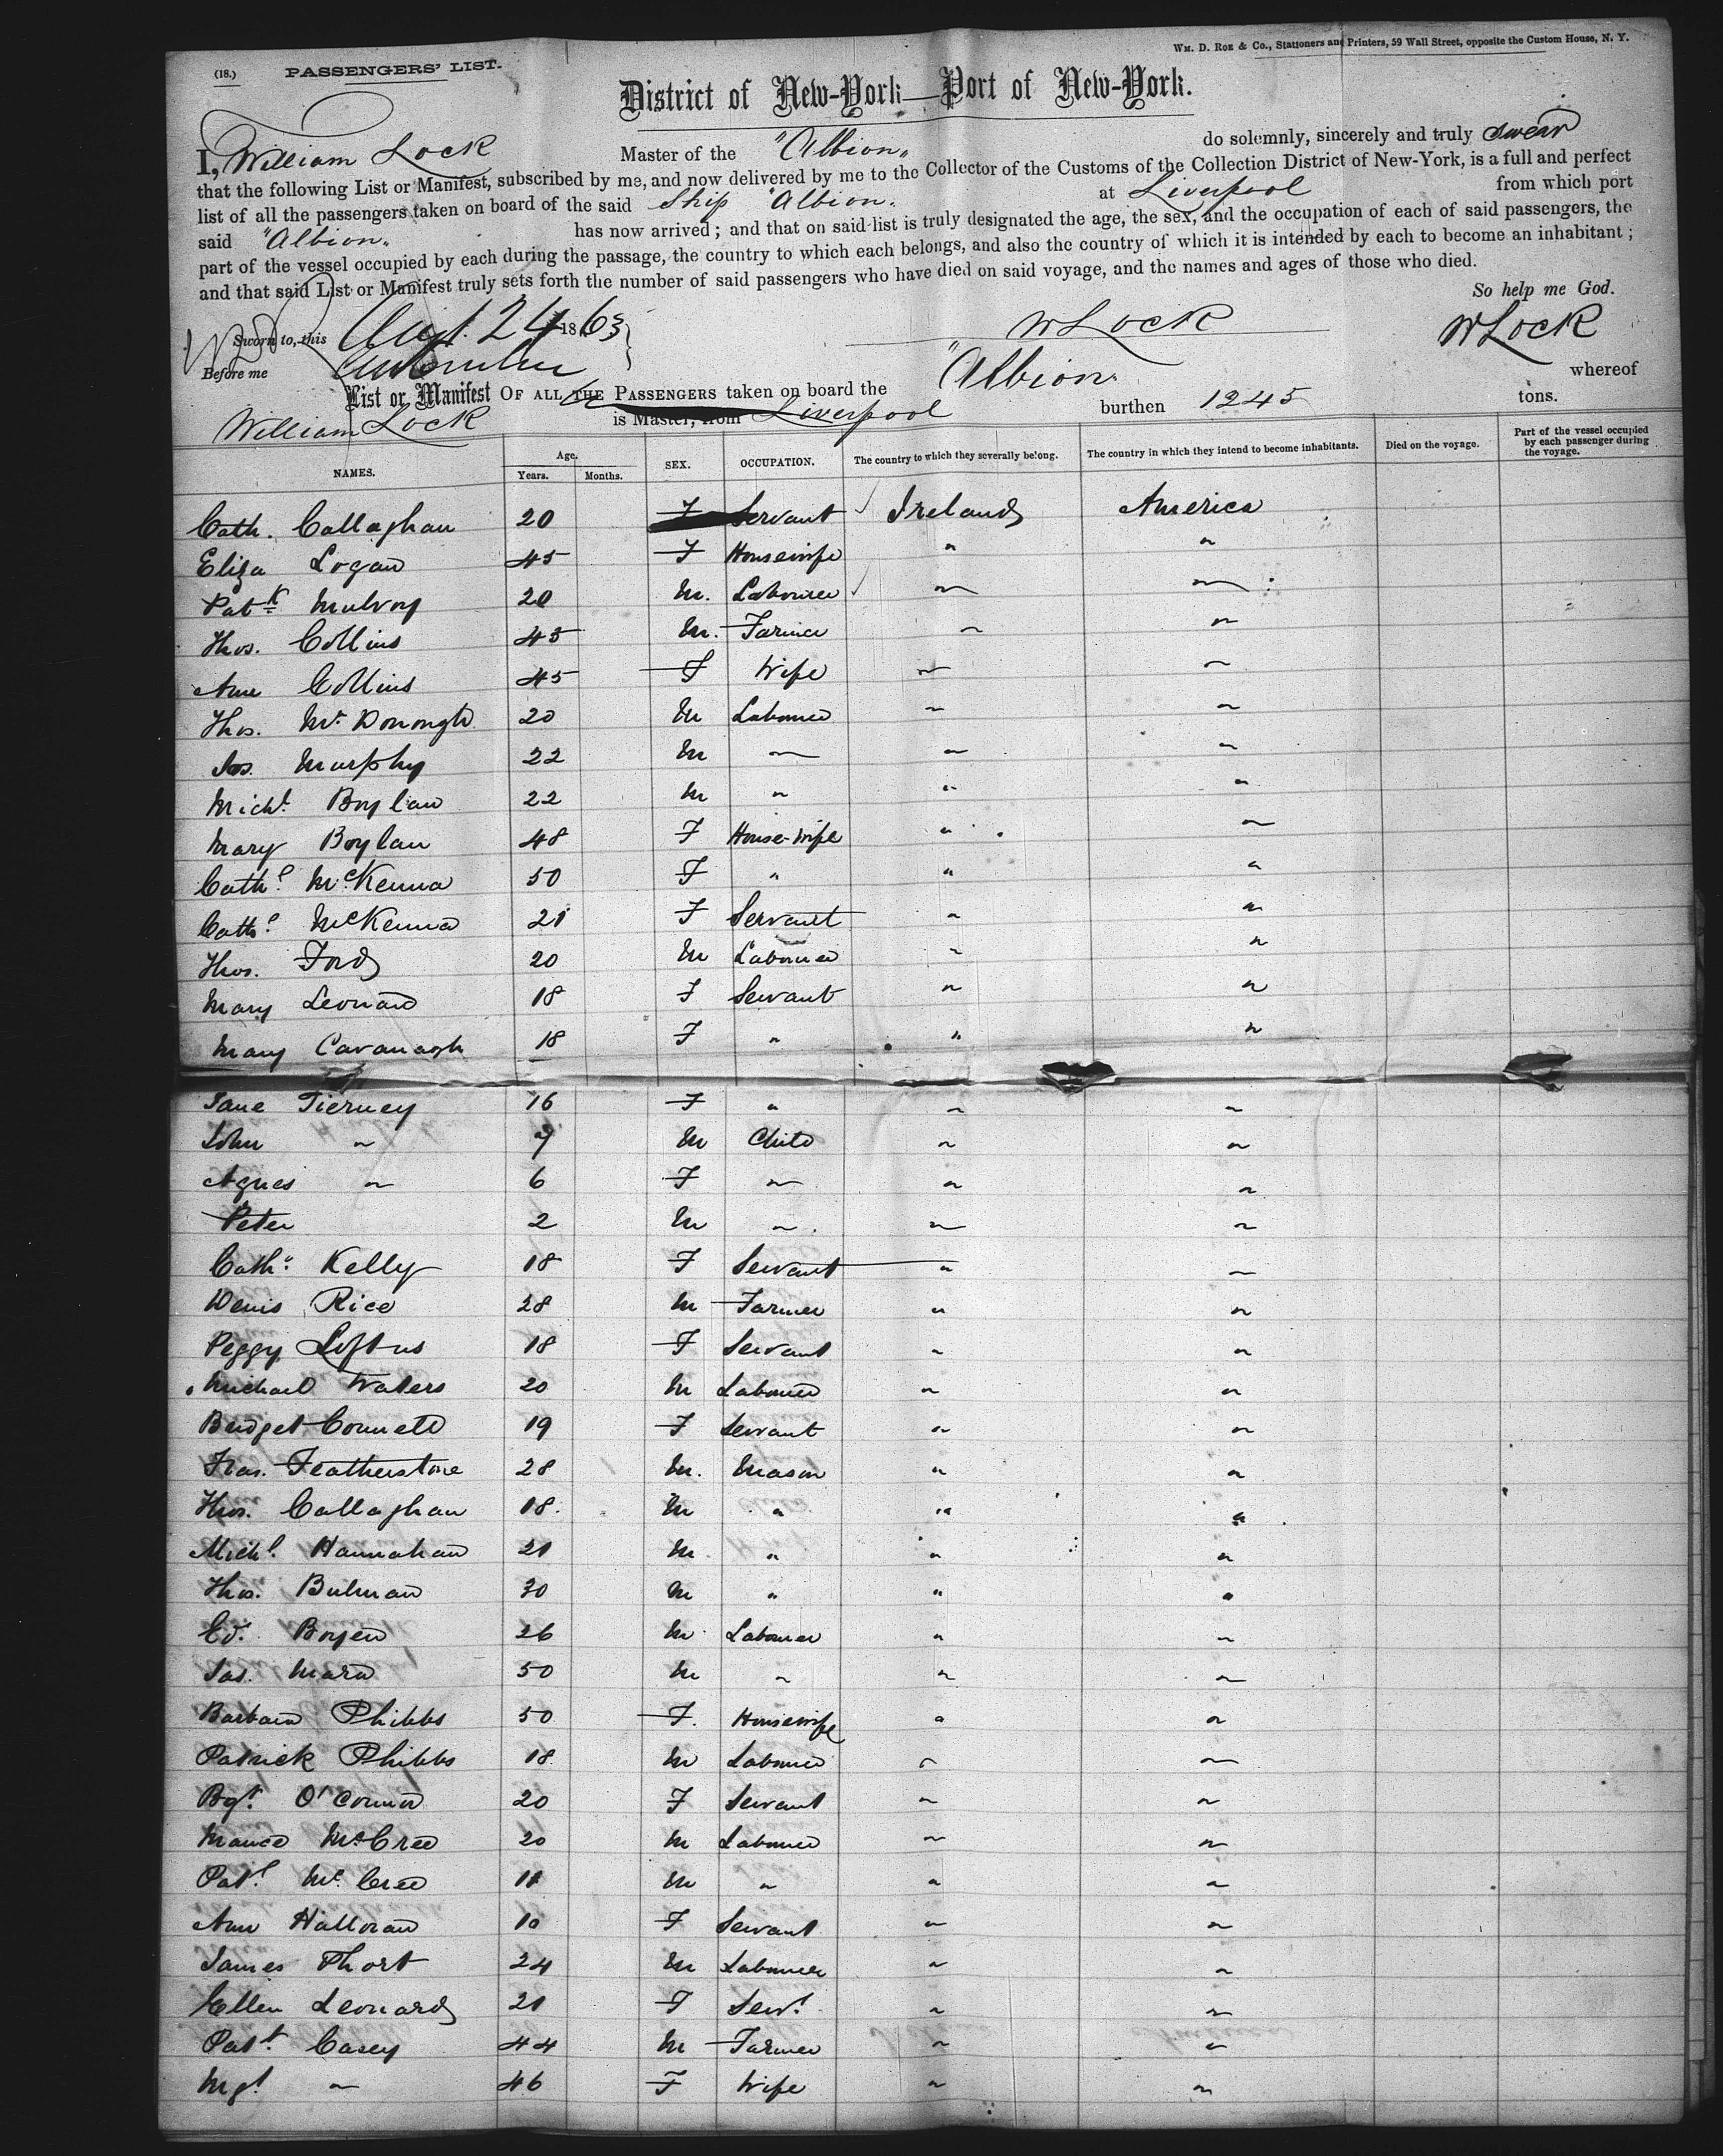 (18.) PASSENGERS' LIST.
WM. D. ROE & Co., Stationers and Printers, 59 Wall Street, opposite the Custom House, N. Y.
District of New-York—Port of New-York.
I, William Lock Master of the "Albion" do solemnly, sincerely and truly swear
that the following List or Manifest, subscribed by me, and now delivered by me to the Collector of the Customs of the Collection District of New-York, is a full and perfect
list of all the passengers taken on board of the said Ship "Albion" at Liverpool from which port
said "Albion" has now arrived; and that on said list is truly designated the age, the sex, and the occupation of each of said passengers, the
part of the vessel occupied by each during the passage, the country to which each belongs, and also the country of which it is intended by each to become an inhabitant;
and that said List or Manifest truly sets forth the number of said passengers who have died on said voyage, and the names and ages of those who died.
So help me God.
Sworn to, this Augt. 24 1863 W Lock W Lock
Before me
List or Manifest OF ALL THE PASSENGERS taken on board the "Albion" whereof
William Lock is Master, from Liverpool burthen 1245 tons.
NAMES. Age. Years. Months. SEX. OCCUPATION. The country to which they severally belong. The country in which they intend to become inhabitants. Died on the voyage. Part of the vessel occupied by each passenger during the voyage.
Cath. Callaghan 20 F Servant Ireland America
Eliza Logan 45 F Housewife " "
Patk Mulvoy 20 M. Labourer " "
Thos. Collins 45 M. Farmer " "
Ann Collins 45 F Wife " "
Thos. McDonough 20 M Labourer " "
Jas. Murphy 22 M " " "
Michl. Boylan 22 M " " "
Mary Boylan 48 F House-wife " "
Cathe. McKenna 50 F " " "
Cathe. McKenna 21 F Servant " "
Thos. Ford 20 M Labourer " "
Mary Leonard 18 F Servant " "
Mary Cavanagh 18 F " " "
Jane Tierney 16 F " " "
John " 7 M Child " "
Agnes " 6 F " " "
Peter 2 M " " "
Cath. Kelly 18 F Servant " "
Denis Rice 28 M Farmer " "
Peggy Loftus 18 F Servant " "
Michael Waters 20 M Labourer " "
Bridget Connell 19 F Servant " "
Fras. Featherstone 28 M. Mason " "
Thos. Callaghan 18. M " " "
Michl. Hannahan 21 M " " "
Thos. Bulman 30 M " " "
Ed. 26 M Labourer " "
Jas. Mara 50 M " " "
Barbara Phibbs 50 F. Housewife " "
Patrick Phibbs 18. M Labourer " "
Bgt. O'Connor 20 F Servant " "
McCree 20 M Labourer " "
Pat. McCree 11 M " " "
Ann Halloran 10 F Servant " "
James Thort 24 M Labourer " "
Ellen Leonard 21 F Servt. " "
Patt. Casey 44 M Farmer " "
Mgt " 46 F Wife " "